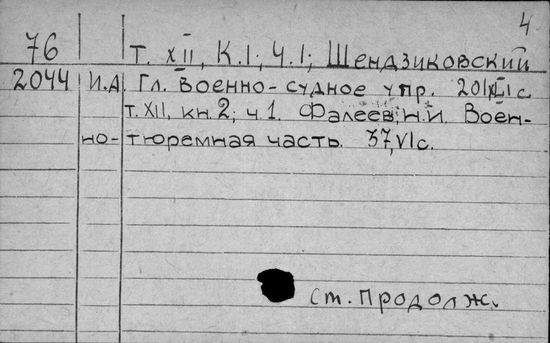 4
76 Т. XII, К.I; Ч.I; Шендзиковский
2044 И.А. Гл. Военно-судное упр.
т. XII, кн. 2, ч 1. Фалеев, Н.И. Воен-
но-тюремная часть. 37,VI с.
Ст. Продолж.